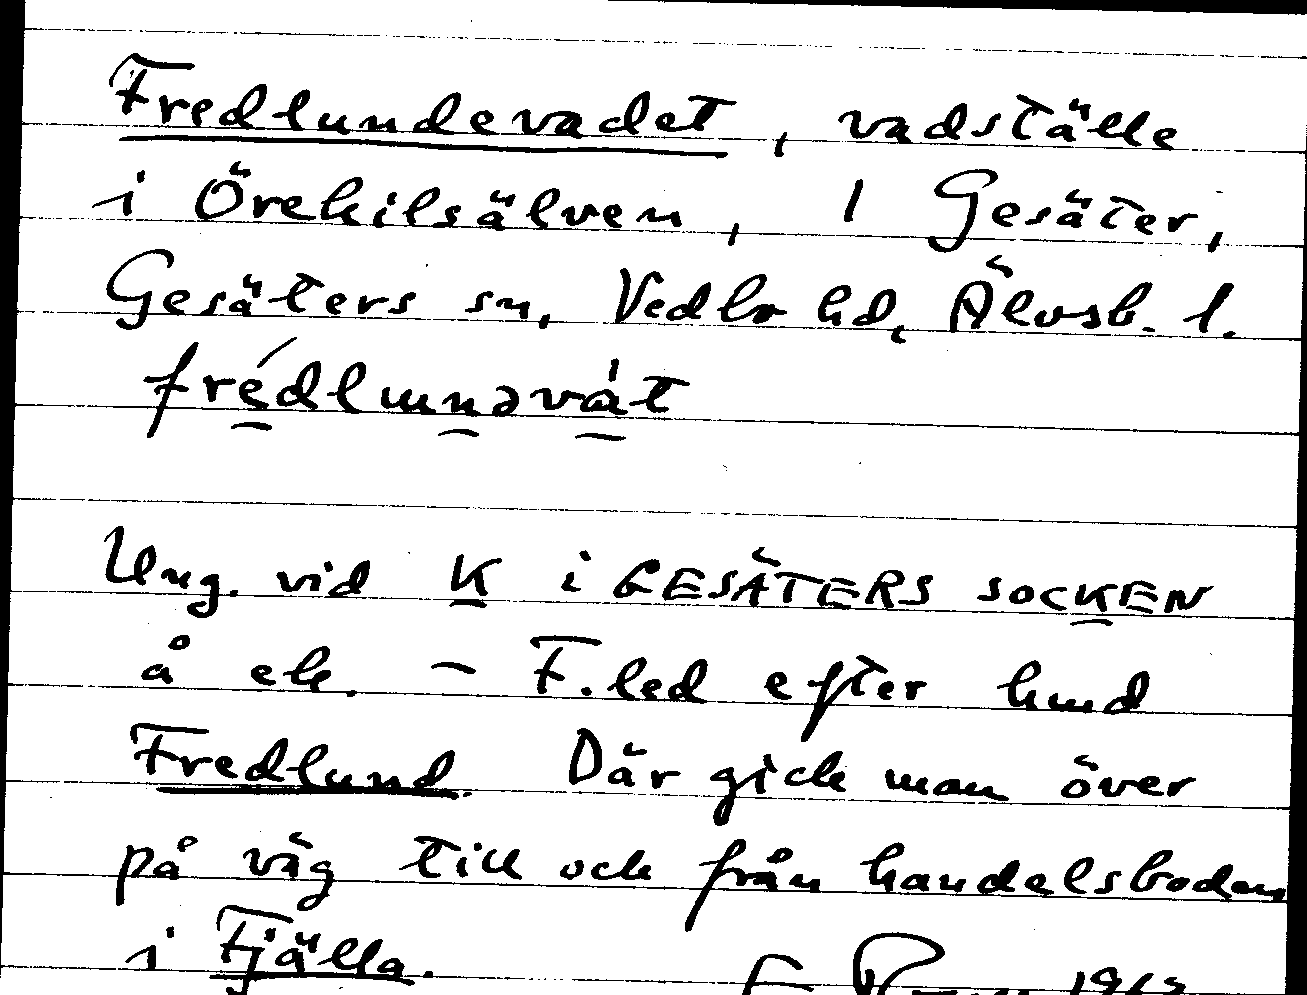 Fredlundevadet, vadställe
i Örekilsälven, 1 Gesäter,
Gesäters sn, Vedbo hd, Älvsb. l.
frédlunəvát
Ung. vid K i GESÄTERS SOCKEN
å ek. – F. led efter hmd
Fredlund. Där gick man över
på väg till och från handelsboden
i Fjälla.